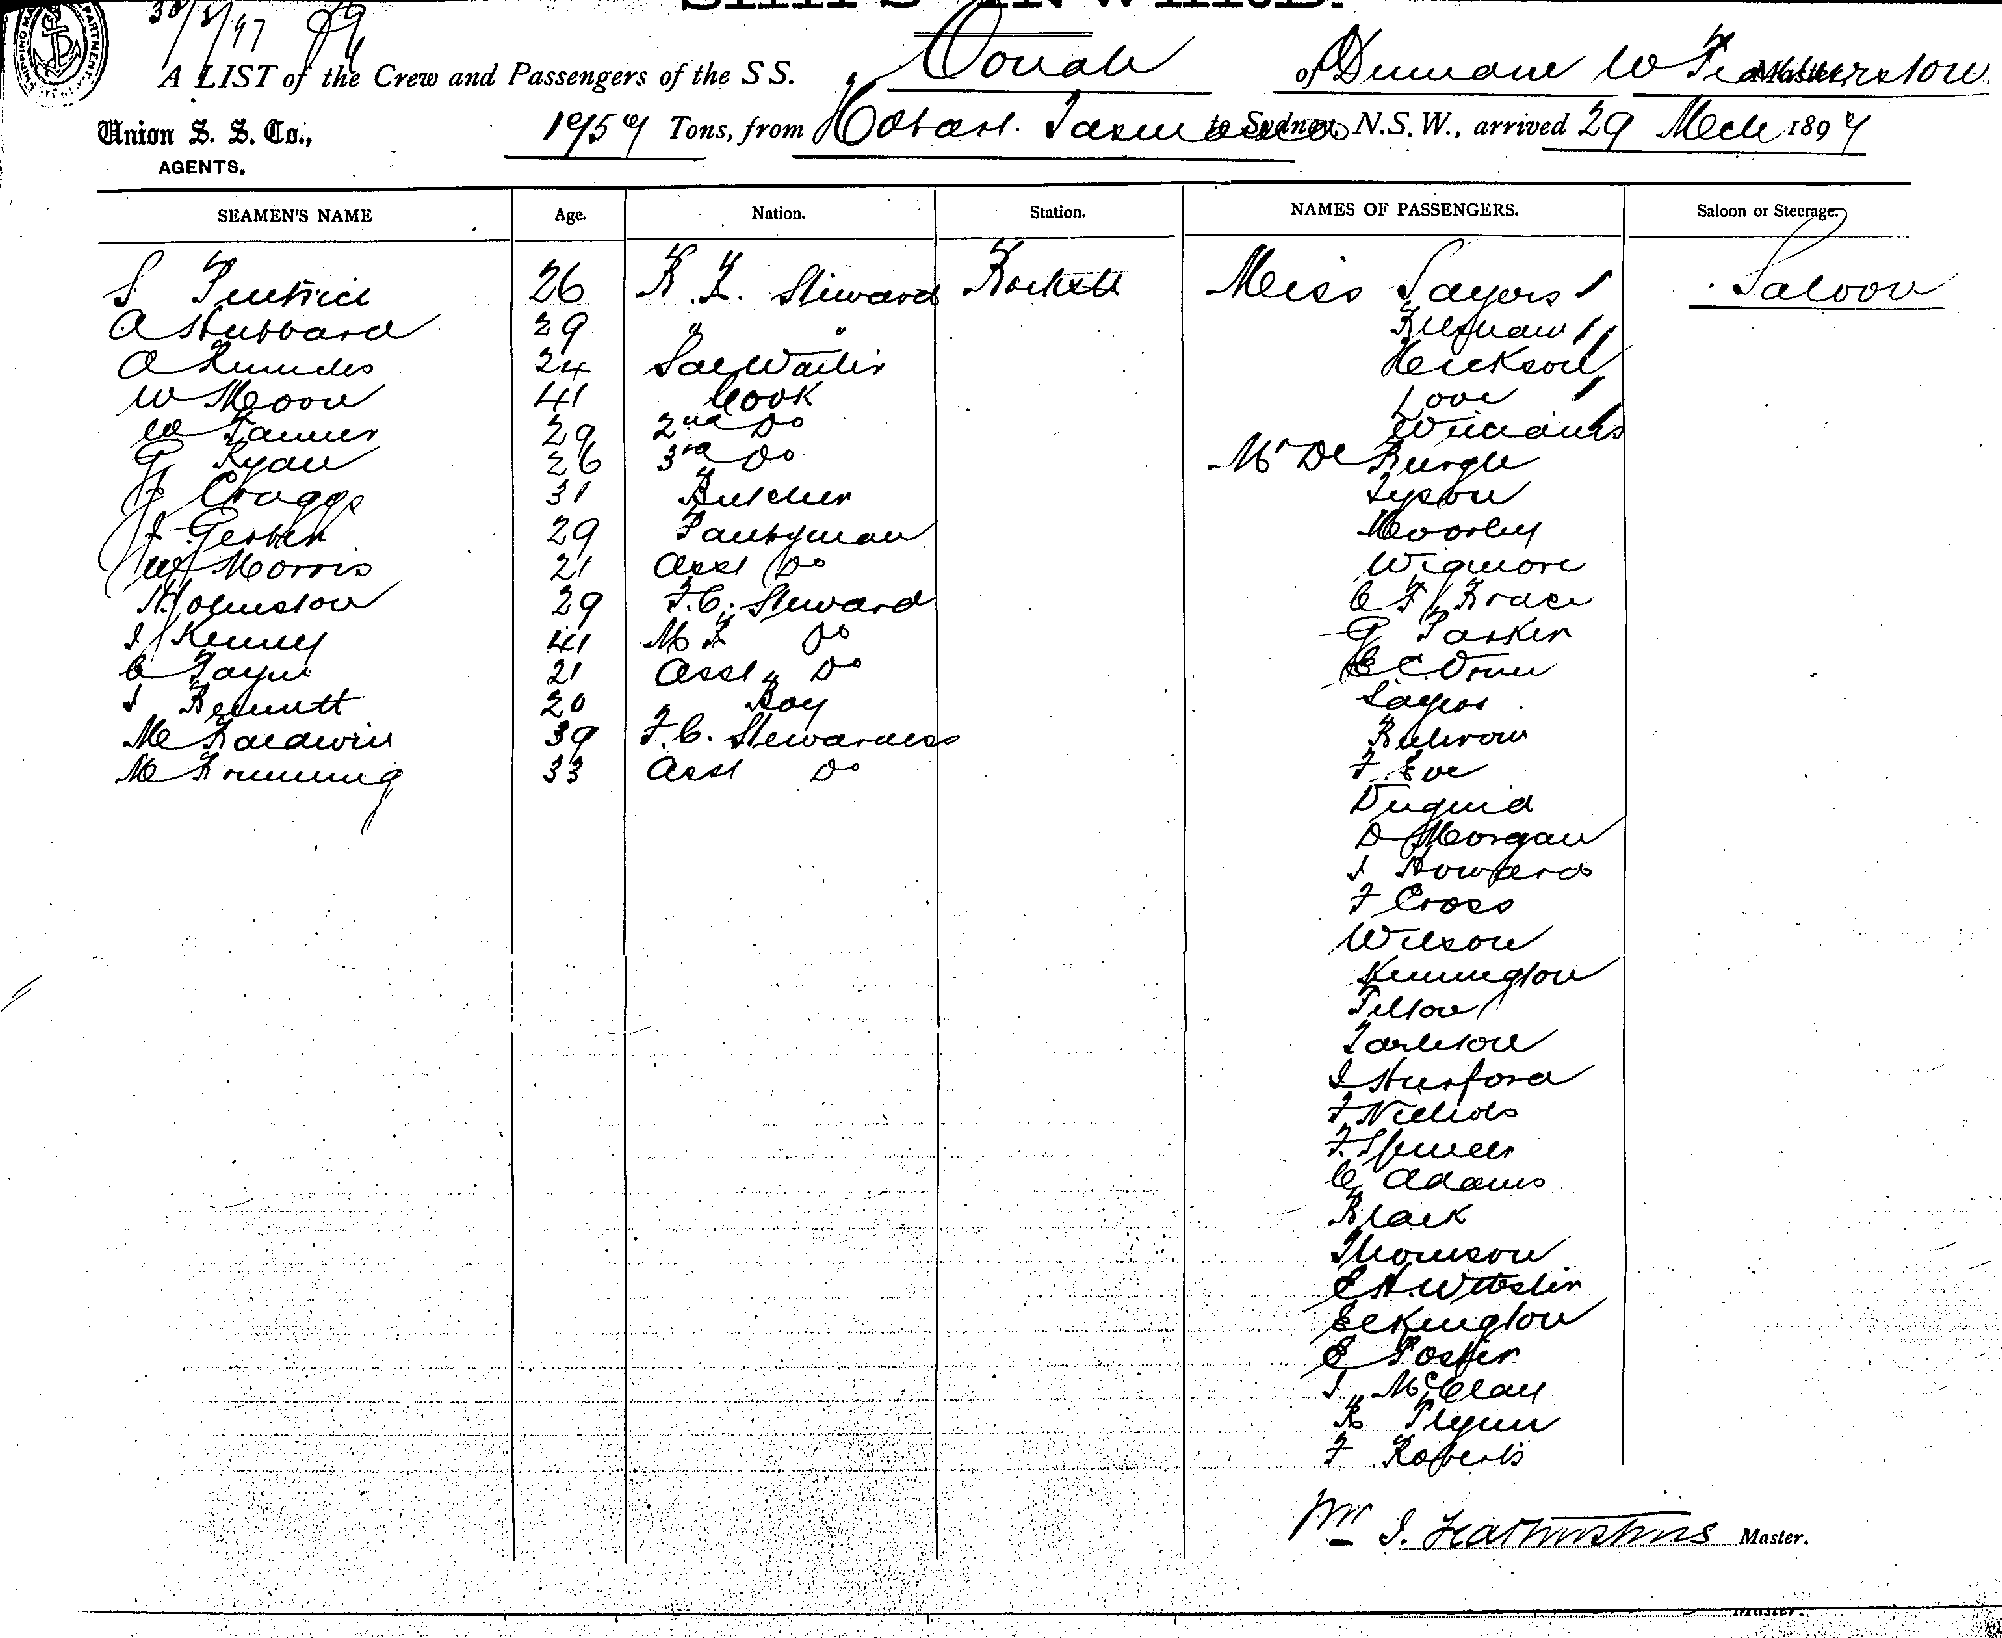 SHIPS INWARD.
30/3/97
A LIST of the Crew and Passengers of the S S. Oonah of Dunedin W Featherstone Master
Union S. S. Co., 1757 Tons, from Hobart Tasmania to Sydney, N.S.W., arrived 29 Mch 1897
AGENTS.
SEAMEN'S NAME Age. Nation. Station. NAMES OF PASSENGERS. Saloon or Steerage.
S 26 Steward Miss Sayers Saloon
A Hubbard 29 " "
A 24 Sal Waiter
W Moon 41 Cook Love
W Tanner 29 2nd Do Williams
G Ryan 26 3rd Do Mr De Burgh
J Craggs 31 Butcher Tyson
J 29 Pantryman Moorley
W Morris 21 Asst Do Wigmore
H Johnston 29 F.C. Steward C F Brace
J Kenney 41 Do G Parker
C Payne 21 Asst " Do
J Bennett 20 " Boy Sayers
M Baldwin 39 F.C. Stewardess
M 33 Asst Do F Eve
Duguid
D Morgan
J Howard
F Cross
Wilson
Kennington
Tilson
Tarleton
J Hurford
F Nichols
F. Spencer
C Adams
Black
Thomson
E H Webster
Elkington
E Foster
J McClay
R Flynn
F Roberts
Wm J. Featherstone Master.